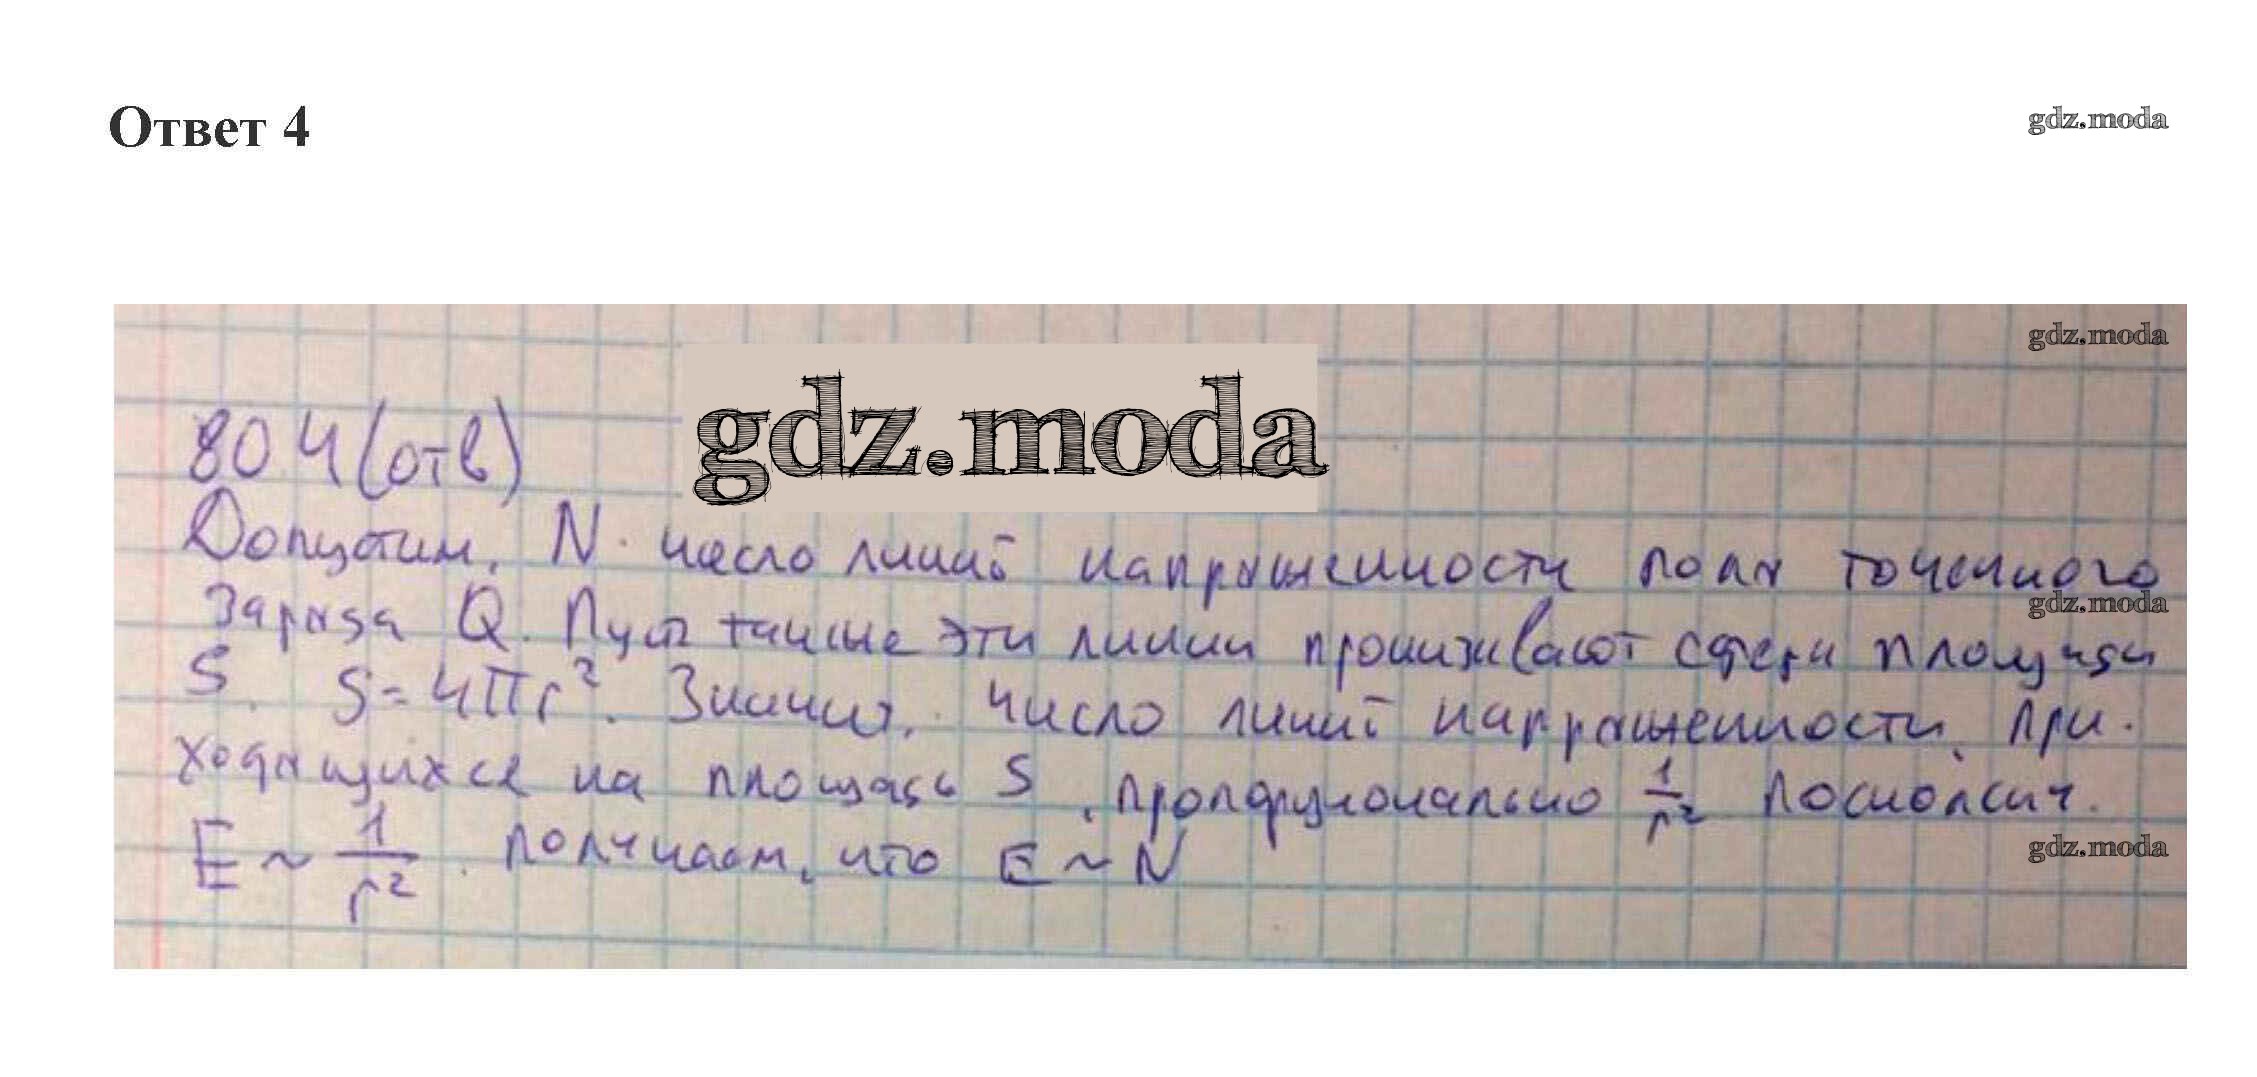 Ответ 4
gdz.moda
gdz.moda
gdz.moda
80 4 (отв)
Допустим, N - число линий напряженности поля точечного
gdz.moda
заряда Q. Пусть также эти линии пронизывают сферы площади
S. S = 4πr². Значит, число линий напряженности, при-
ходящихся на площадь S, пропорционально 1/r² поскольку
gdz.moda
E ~ 1/r². получаем, что E ~ N